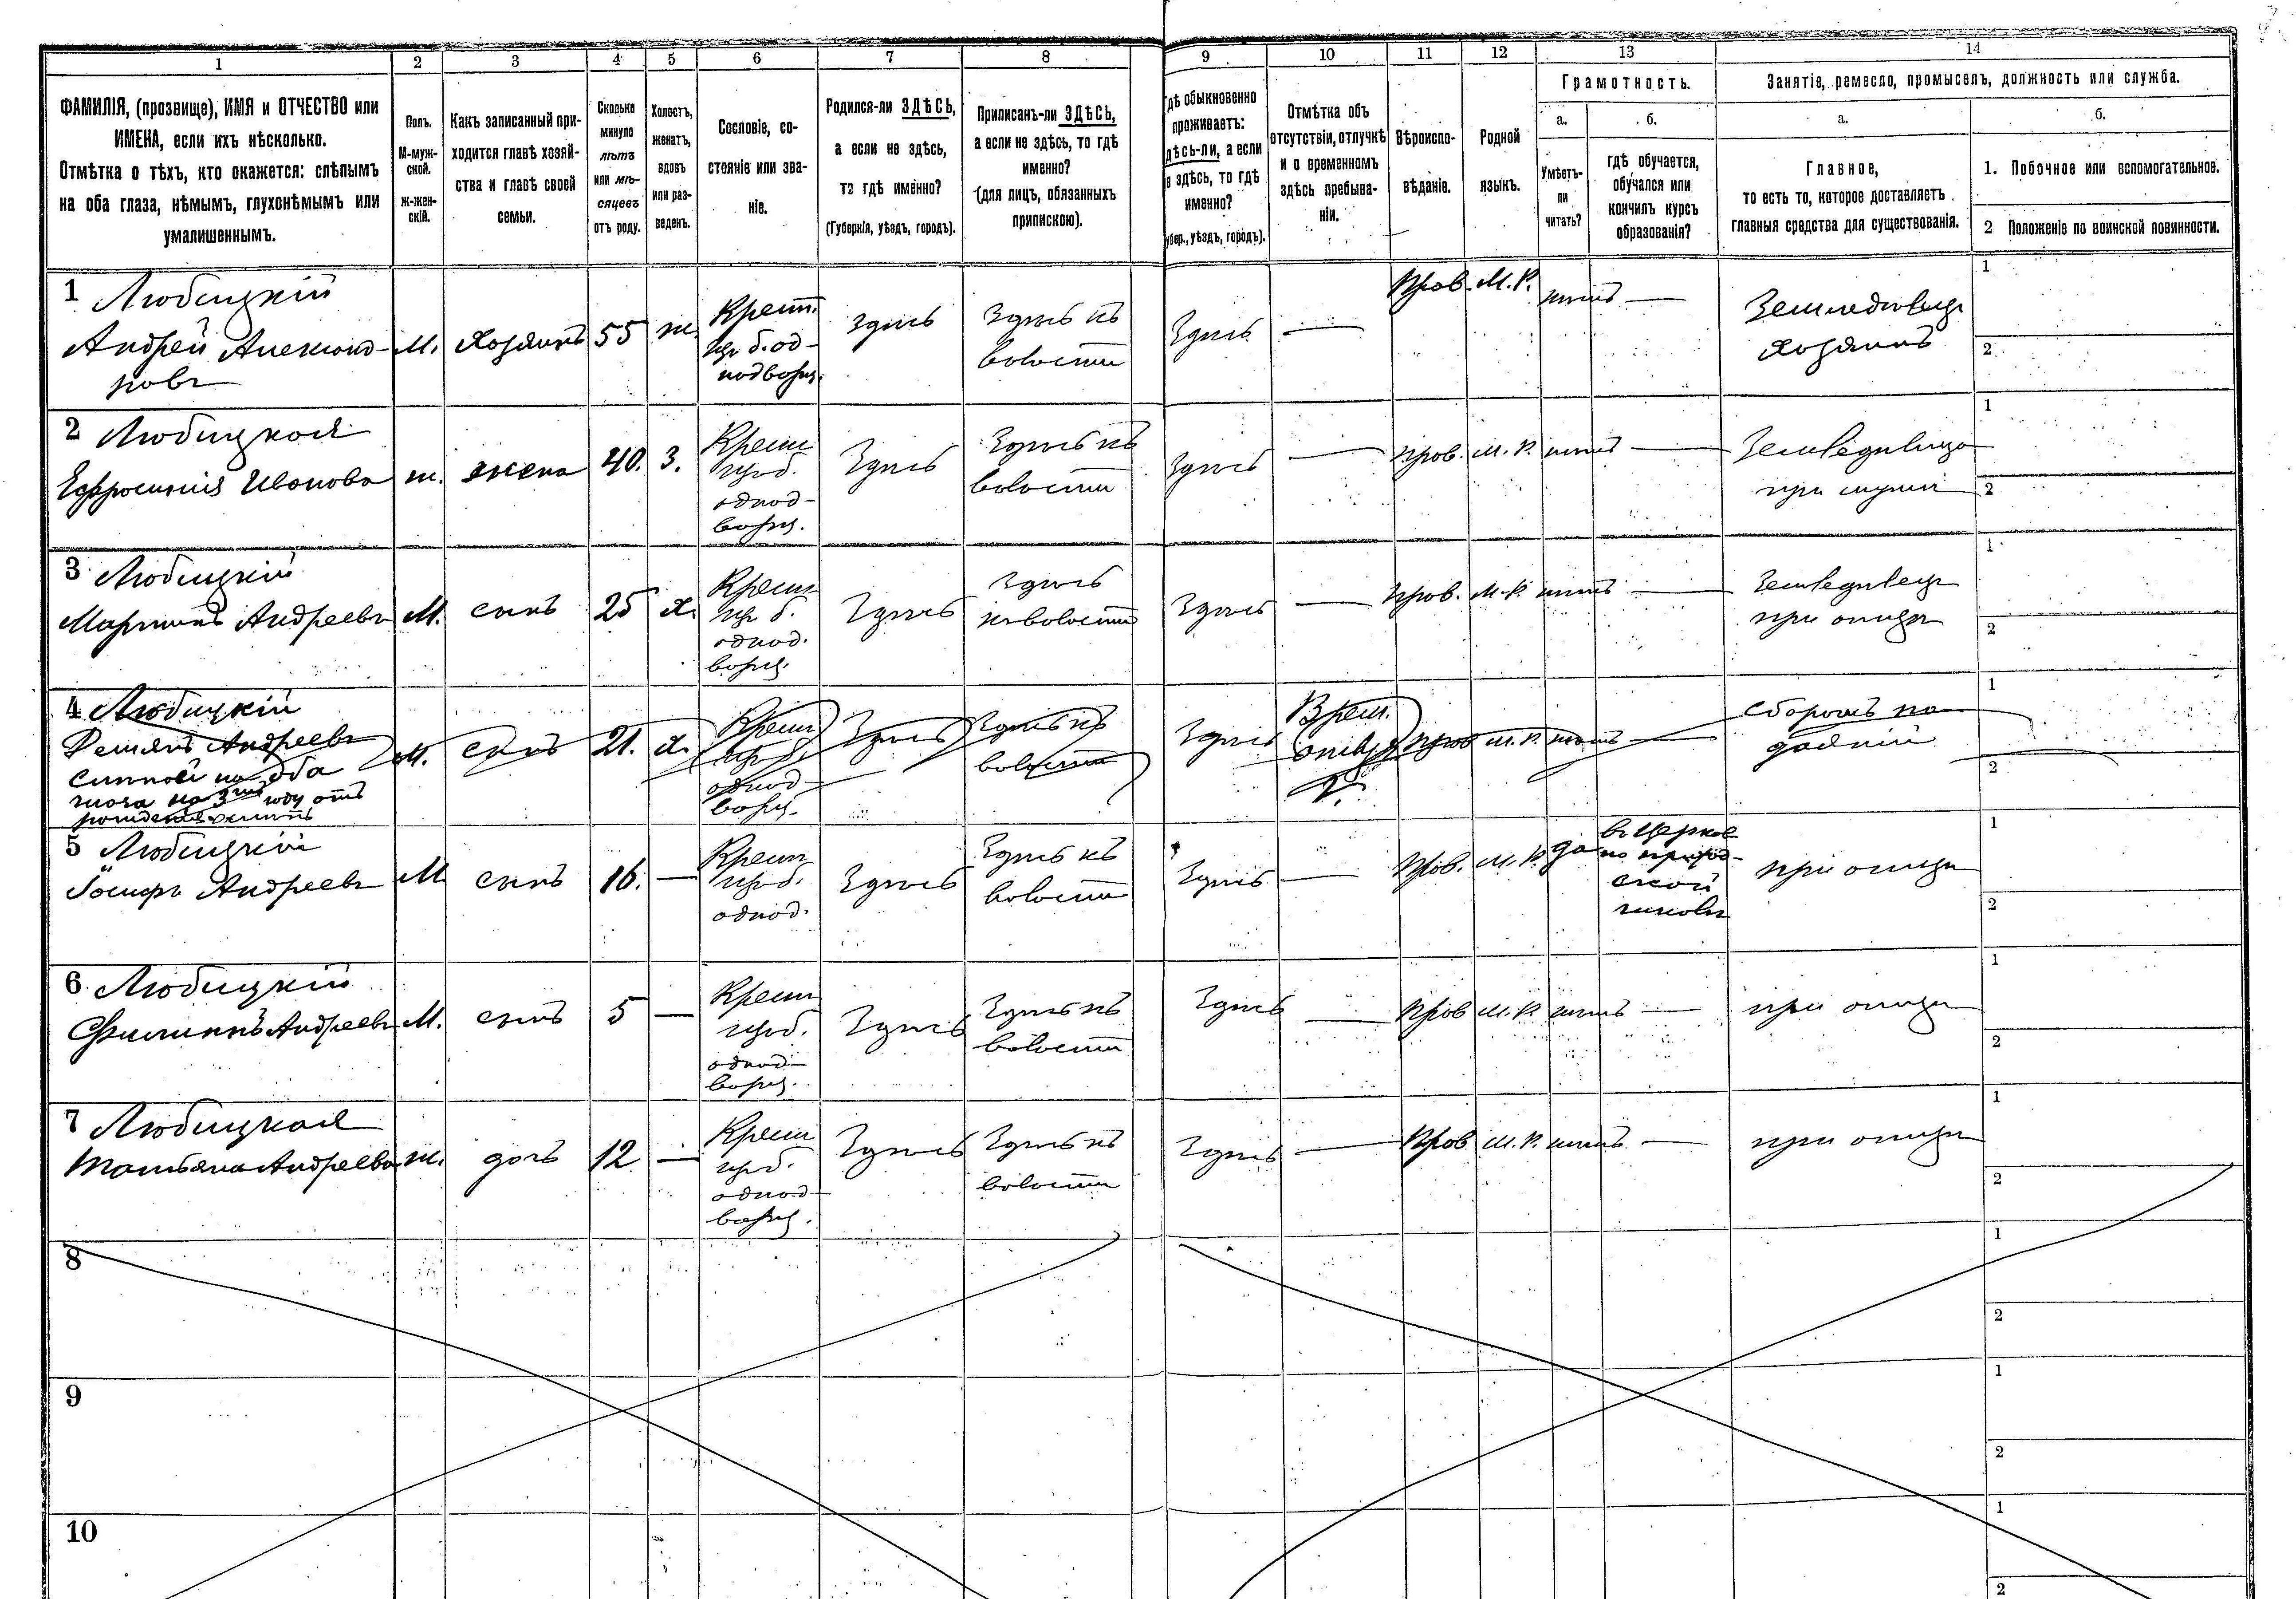 1 2 3 4 5 6 7 8 9 10 11 12 13 14
ФАМИЛІЯ, (прозвище), ИМЯ и ОТЧЕСТВО или
ИМЕНА, если ихъ нѣсколько.
Отмѣтка о тѣхъ, кто окажется: слѣпымъ
на оба глаза, нѣмымъ, глухонѣмымъ или
умалишеннымъ.
Полъ.
М-муж-
ской.
Ж-жен-
скій.
Какъ записанный при-
ходится главѣ хозяй-
ства и главѣ своей
семьи.
Сколько
минуло
лѣтъ
или мѣ-
сяцевъ
отъ роду.
Холостъ,
женатъ,
вдовъ
или раз-
веденъ.
Сословіе, со-
стояніе или зва-
ніе.
Родился-ли ЗДѢСЬ,
а если не здѣсь,
то гдѣ именно?
(Губернія, уѣздъ, городъ).
Приписанъ-ли ЗДѢСЬ,
а если не здѣсь, то гдѣ
именно?
(для лицъ, обязанныхъ
припискою).
гдѣ обыкновенно
проживаетъ:
дѣсь-ли, а если
е здѣсь, то гдѣ
именно?
убер., уѣздъ, городъ).
Отмѣтка объ
отсутствіи, отлучкѣ
и о временномъ
здѣсь пребыва-
ніи.
Вѣроиспо-
вѣданіе.
Родной
языкъ.
Грамотность.
а.
Умѣетъ-
ли
читать?
б.
гдѣ обучается,
обучался или
кончилъ курсъ
образованія?
Занятіе, ремесло, промыселъ, должность или служба.
а.
Главное,
то есть то, которое доставляетъ
главныя средства для существованія.
б.
1. Побочное или вспомогательное.
2 Положеніе по воинской повинности.
1 Любицкій
Андрей Александ-
ровъ
М.
Хозяинъ
55
ж.
Крест.
изъ б. од-
нодворц.
Здѣсь
Здѣсь въ
волости
Здѣсь
—
Прав.
М. Р.
нѣтъ
—
Земледѣлецъ
Хозяинъ
1
2
2 Любицкая
Ефросинія Иванова
ж.
жена
40.
З.
Крест
изъ б.
однод-
ворц.
Здѣсь
Здѣсь въ
волости
Здѣсь
—
Прав.
М. Р.
нѣтъ
—
при мужѣ
1
2
3 Любицкій
Мартинъ Андреевъ
М.
сынъ
25
Х.
Крест
изъ б.
однод.
ворц.
Здѣсь
Здѣсь
въ волости
Здѣсь
—
Прав.
М. Р.
нѣтъ
—
при отцѣ
1
2
4 Любицкій
Демянъ Андреевъ
слѣпой на оба
глаза на 3мъ году отъ
М.
сынъ
21.
Х.
Крест
изъ б.
однод-
ворц.
Здѣсь
Здѣсь въ
волости
Здѣсь
Врем.
Прав
М. Р.
нѣтъ
—
сборомъ по-
даяній
1
2
5 Любицкій
Іосифъ Андреевъ
М
сынъ
16.
—
Крест
изъ б.
однод.
Здѣсь
Здѣсь въ
волости
Здѣсь
—
Прав.
М. Р.
да
въ Церков
но приход-
ской
школѣ
при отцѣ
1
2
6 Любицкій
Филиппъ Андреевъ
М.
сынъ
5
—
Крест
изъ б.
однод-
ворц.
Здѣсь
Здѣсь въ
волости
Здѣсь
—
Прав
М. Р.
нѣтъ
—
при отцѣ
1
2
7 Любицкая
Татьяна Андреева
ж.
дочь
12
—
Крест
изъ б.
однод-
ворц.
Здѣсь
Здѣсь въ
волости
Здѣсь
—
Прав
М. Р.
нѣтъ
—
при отцѣ
1
2
8
1
2
9
1
2
10
1
2